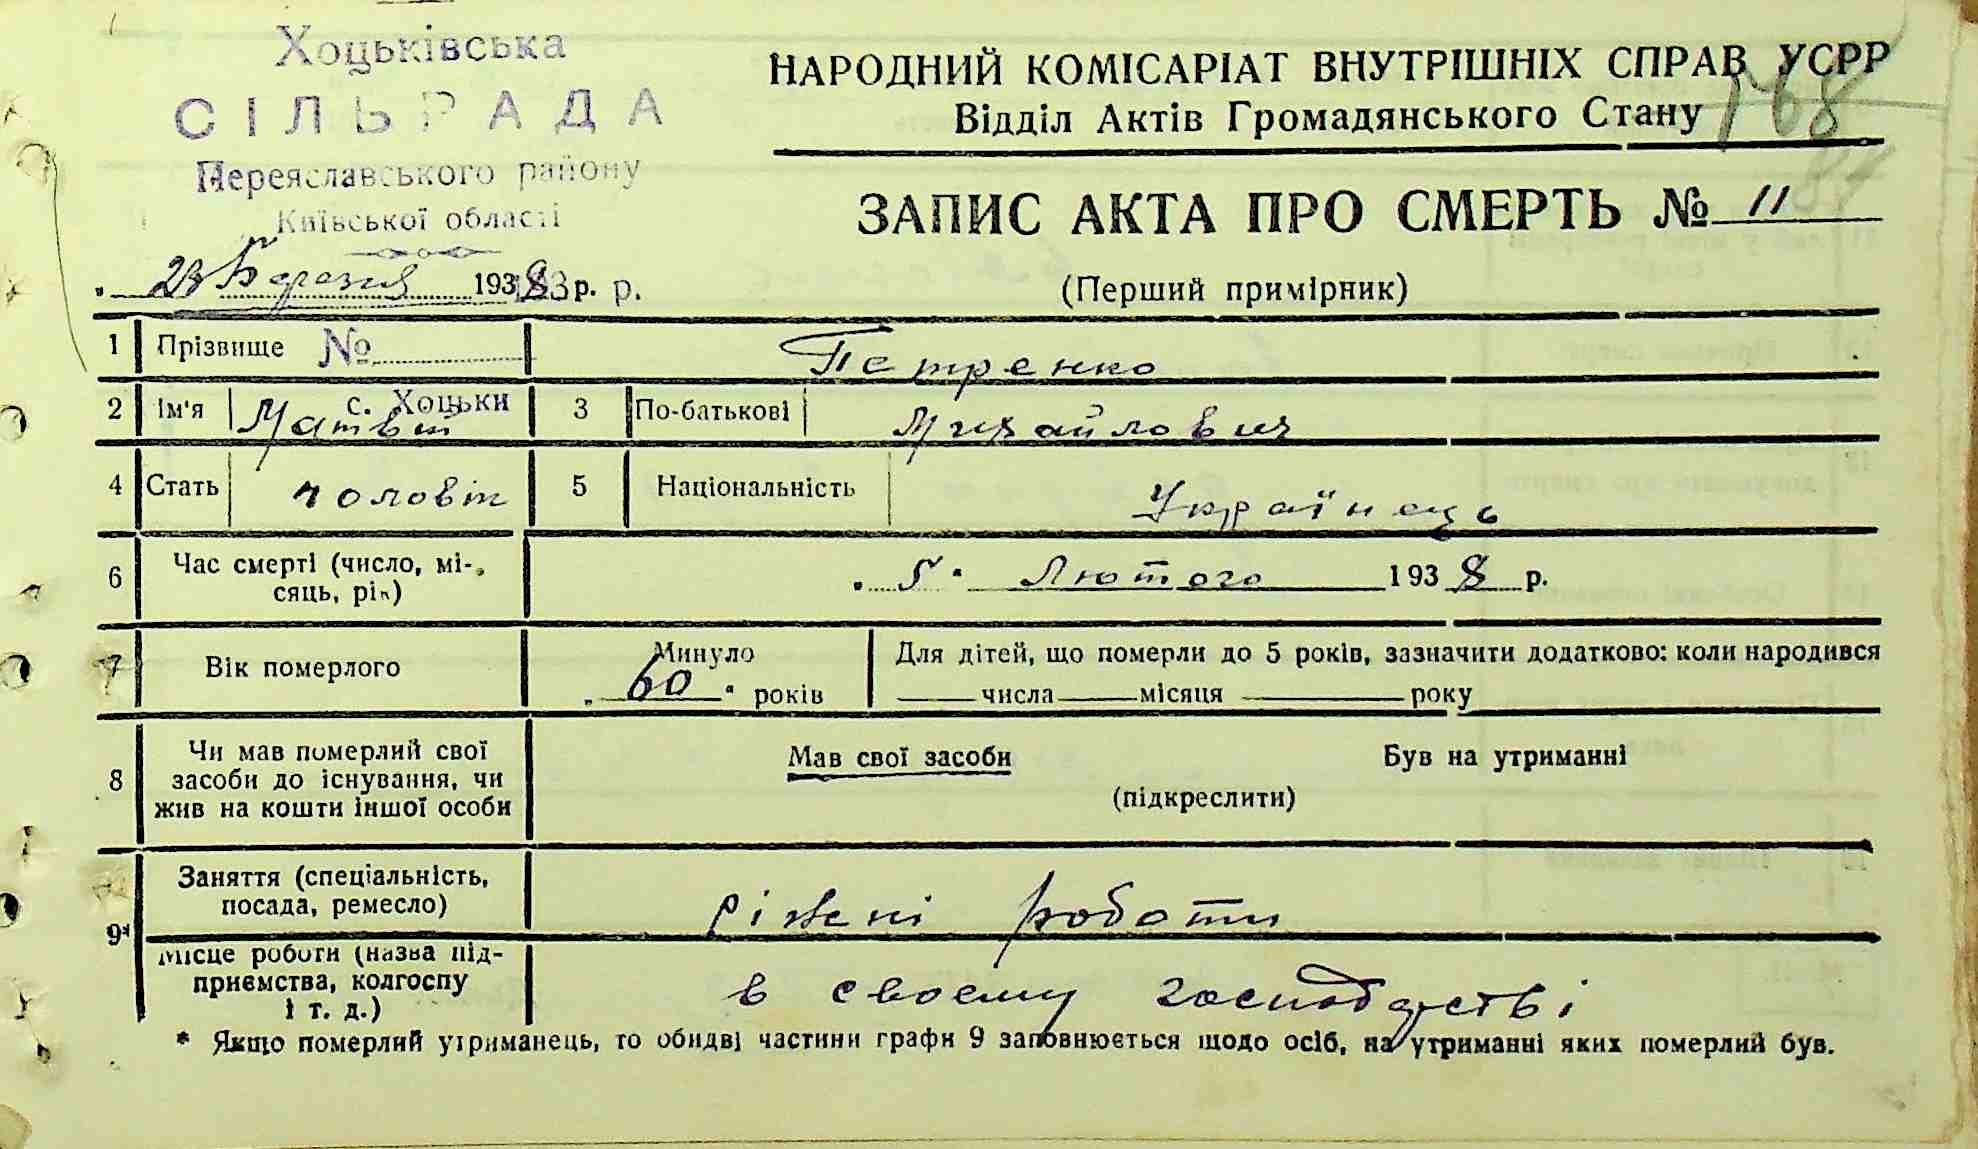 Хоцьківська
СІЛЬРАДА
Переяславського району
Київської області
НАРОДНИЙ КОМІСАРІАТ ВНУТРІШНІХ СПРАВ УСРР
Відділ Актів Громадянського Стану
168
87
ЗАПИС АКТА ПРО СМЕРТЬ № 11
(Перший примірник)
Березня 1938 р. р.
1 Прізвище № Петренко
2 Ім'я с. Хоцьки Матвій 3 По-батькові Михайлович
4 Стать чоловіч 5 Національність Українець
6 Час смерті (число, мі-
сяць, рік) „ 5 " Лютого 1938 р.
7 Вік померлого Минуло
„ 60 " років
Для дітей, що померли до 5 років, зазначити додатково: коли народився
числа місяця року
8 Чи мав померлий свої
засоби до існування, чи
жив на кошти іншої особи
Мав свої засоби Був на утриманні
(підкреслити)
9* Заняття (спеціальність,
посада, ремесло) ріжні роботи
Місце роботи (назва під-
приємства, колгоспу
і т. д.) в своєму господарстві
* Якщо померлий утриманець, то обидві частини графи 9 заповнюється щодо осіб, на утриманні яких померлий був.